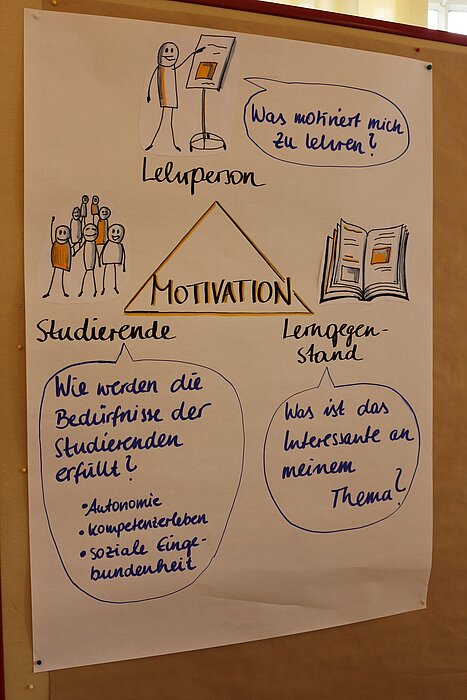 Was motiviert mich
zu lehren?
Lehrperson
MOTIVATION
Studierende
Lerngegen-
stand
Wie werden die
Bedürfnisse der
Studierenden
erfüllt?
• Autonomie
• Kompetenzerleben
• soziale Einge-
bundenheit
Was ist das
Interessante an
meinem
Thema?